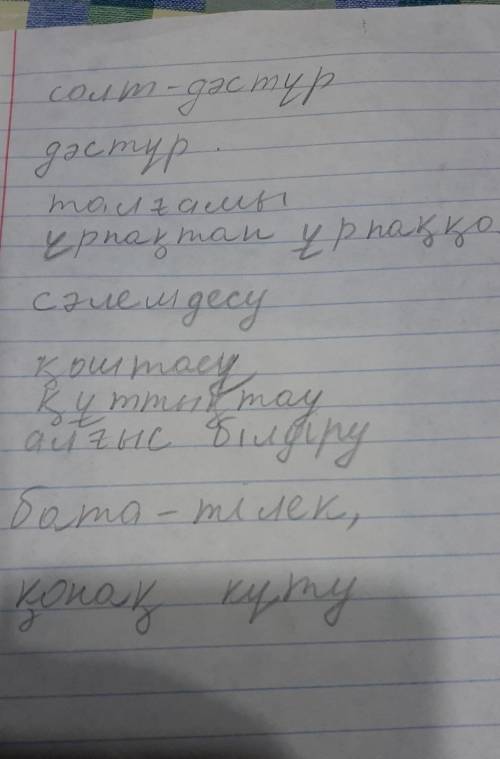 салт-дәстүр
дәстүр.
талғамы
ұрпақтан ұрпаққа
сәлемдесу
қоштасу
құттықтау
алғыс білдіру
бата-тілек,
қонақ күту